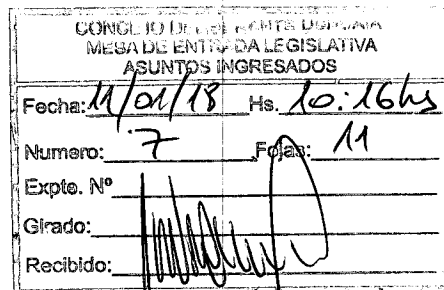 CONCEJO DELIBERANTE USHUAIA
MESA DE ENTRADA LEGISLATIVA
ASUNTOS INGRESADOS
Fecha: 11/01/18 Hs. 10:16hs
Numero: 7 Fojas: 11
Expte. Nº
Girado:
Recibido: